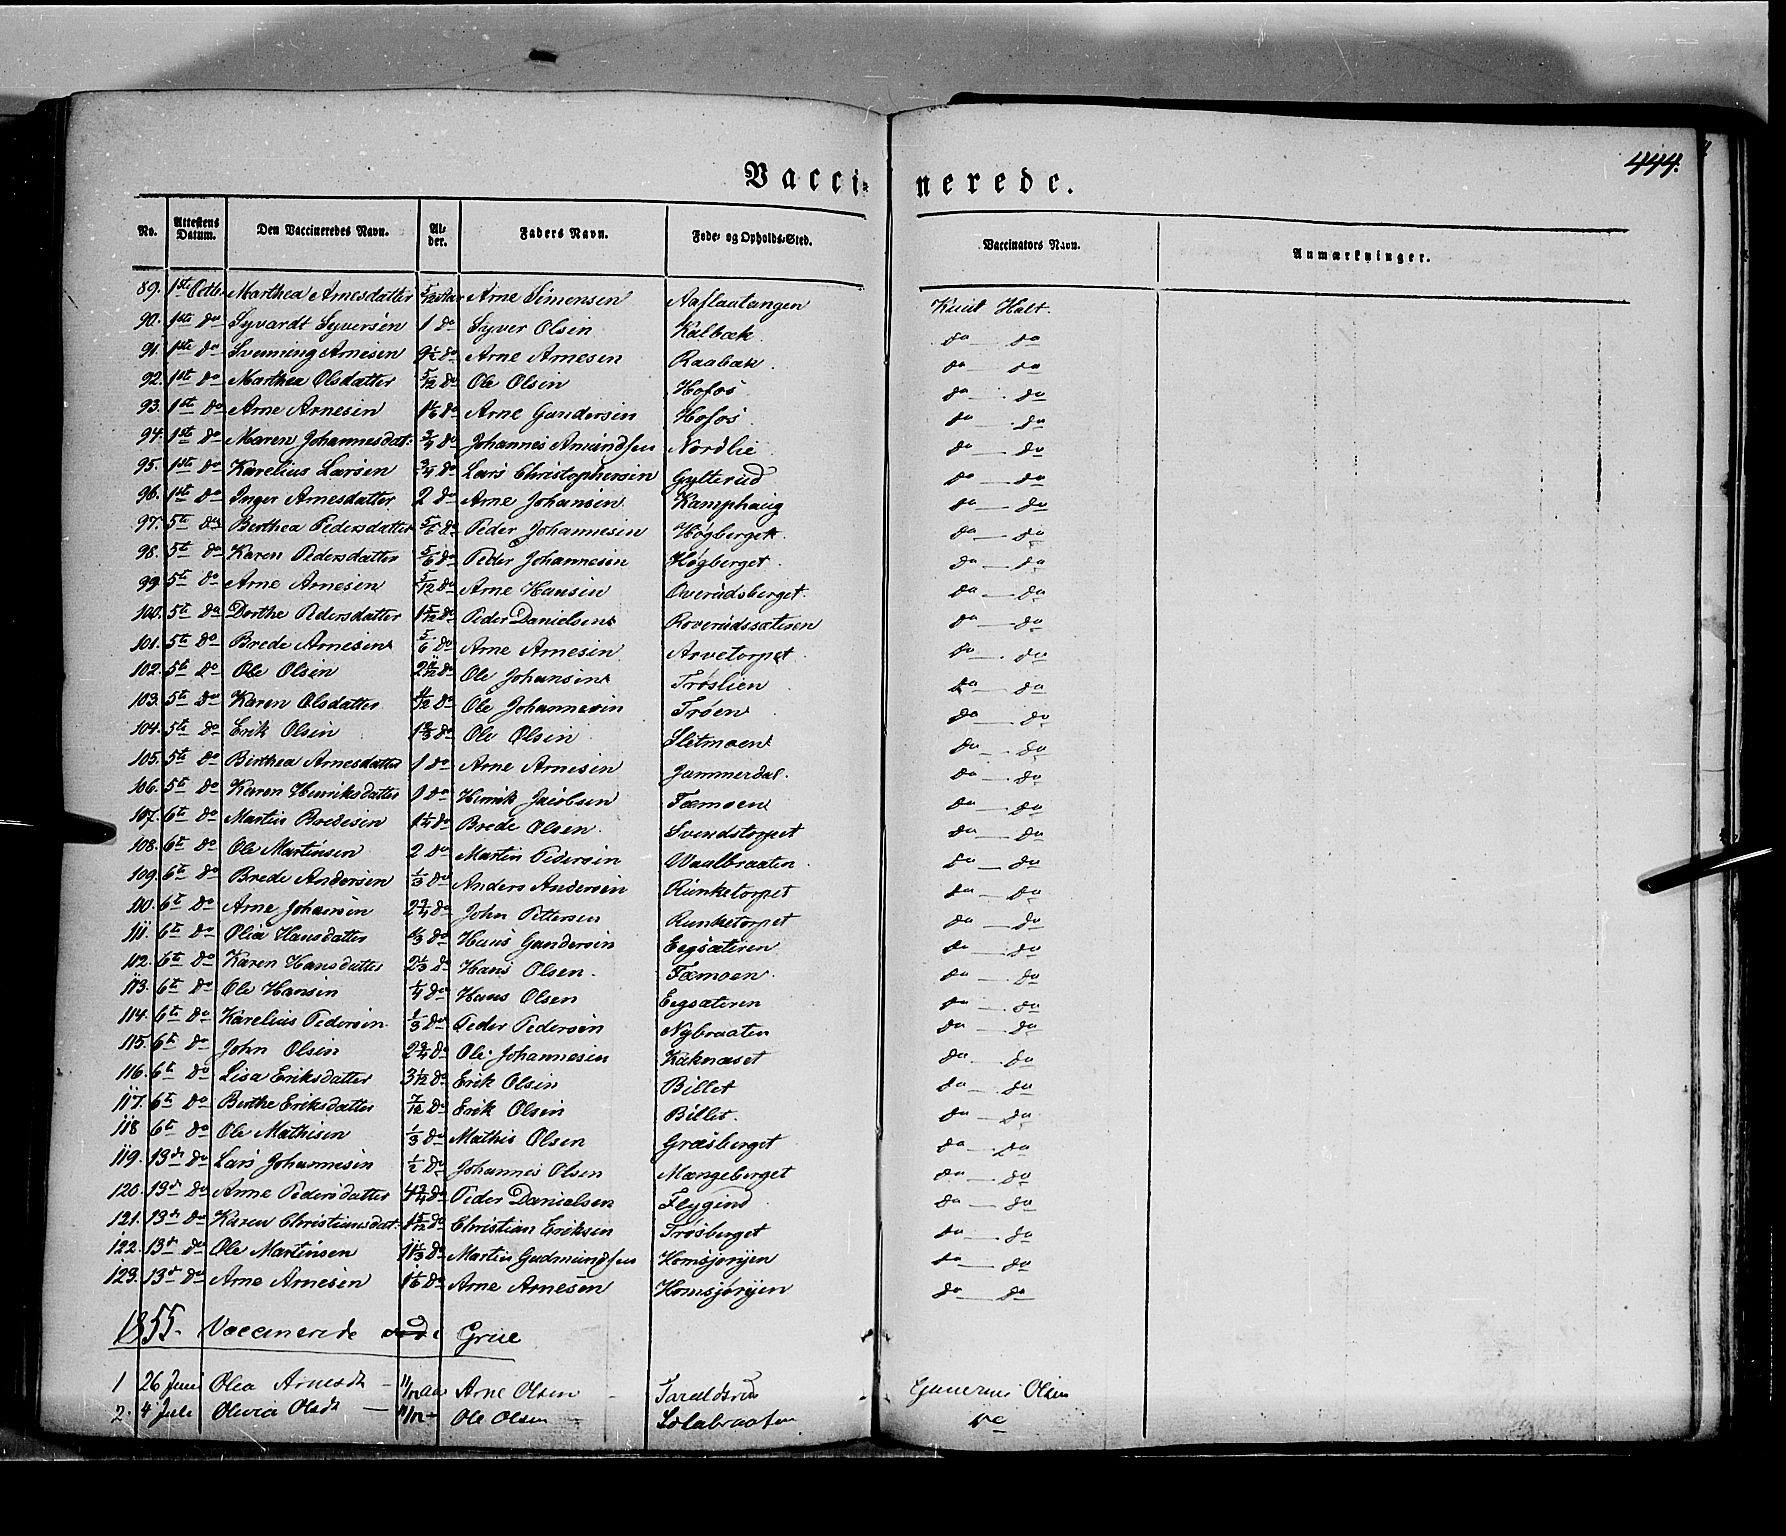 444.
Vaccinerede.
No. Attestens Datum. Den Vaccineredes Navn. Alder. Faders Navn. Føde- og Opholds-Sted. Vaccinators Navn. Anmærkninger.
89. 1ste Octbr Marthea Arnesdatter 5/12 Aar Arne Simensen Aaflaatangen Knut Holt.
90. 1ste do Syvardt Syversen 1 do Syver Olsen Kalbæk do do
91. 1ste do Svenning Arnesen do Arne Arnesen Raabæk do do
92. 1st do Marthea Olsdatter 5/12 do Ole Olsen Hofos do do
93. 1st do Arne Arnesen 1 1/6 do Arne Gundersen Hofos do do
94. 1st do Maren Johannesdat: 3/4 do Johannes Amundsen Nordlie do do
95. 1st do Karelius Larsen 3/4 do Lars Christophersen Gylterud do do
96. 1st do Inger Arnesdatter 2 do Arne Johansen Kamphaug do do
97. 5te do Berthea Pedersdatter 5/6 do Peder Johannesen Høgberget do do
98. 5te do Karen Pedersdatter 5/6 do Peder Johannesen Høgberget do do
99. 5te do Arne Arnesen 5/12 do Arne Hansen Overudsberget do do
100. 5te do Dorthe Pedersdatter 1 5/12 do Peder Danielsen Roverudssæteren do do
101. 5te do Brede Arnesen 5/6 do Arne Arnesen Arvetorpet do do
102. 5te do Ole Olsen do Ole Johansen Trøslien do do
103. 5te do Karen Olsdatter do Ole Johannesen Trøen do do
104. 5te do Erik Olsen 1 2/3 do Ole Olsen Sletmoen do do
105. 5te do Berthea Arnesdatter 1 do Arne Arnesen Jammerdal. do do
106. 5te do Karen Henriksdatter 1 do Henrik Jacobsen Tæmoen do do
107. 6te do Martin Bredesen 1 1/4 do Brede Olsen Svendstorpet do do
108. 6te do Ole Martinsen 2 do Martin Pedersen Waalbraaten do do
109. 6te do Brede Andersen 1/3 do Anders Andersen Runketorpet do do
110. 6te do Arne Johansen 2 3/4 do John Pettersen Runketorpet do do
111. 6te do Olia Hansdatter do Hans Gundersen Eegsæteren do do
112. 6te do Karen Hansdatter 2 1/3 do Hans Olsen Tæmoen do do
113. 6te do Ole Hansen 1/4 do Hans Olsen Eegsæteren do do
114. 6te do Karelius Pedersen 1/3 do Peder Pedersen Nybraaten do do
115. 6te do John Olsen 2 3/4 do Ole Johannesen Kaknæset do do
116. 6te do Lisa Eriksdatter 3 1/12 do Erik Olsen Billet do do
117. 6te do Berthe Eriksdatter 7/12 do Erik Olsen Billet do do
118 6te do Ole Mathisen 1/3 do Mathis Olsen Græsberget do do
119. 13de do Lars Johannesen 1/2 do Johannes Olsen Mængeberget do do
120. 13de do Anne Pedersdatter 4 3/4 do Peder Danielsen Flygind do do
121. 13de do Karen Christiansdat: 1 5/12 do Christian Eriksen Trøsberget do do
122. 13de do Ole Martinsen 1 1/3 do Martin Gudmundsen Homsjøryen do do
123. 13de do Arne Arnesen 1 1/6 do Arne Arnesen Homsjøryen do do
1855. Vaccinerede i Grue
1 26 Juni Olea Arnesdt 11/12 Aar Arne Olsen Taraldsrud Olsen
2. 4 Juli Olivia Olsdt 11/12 Ole Olsen do